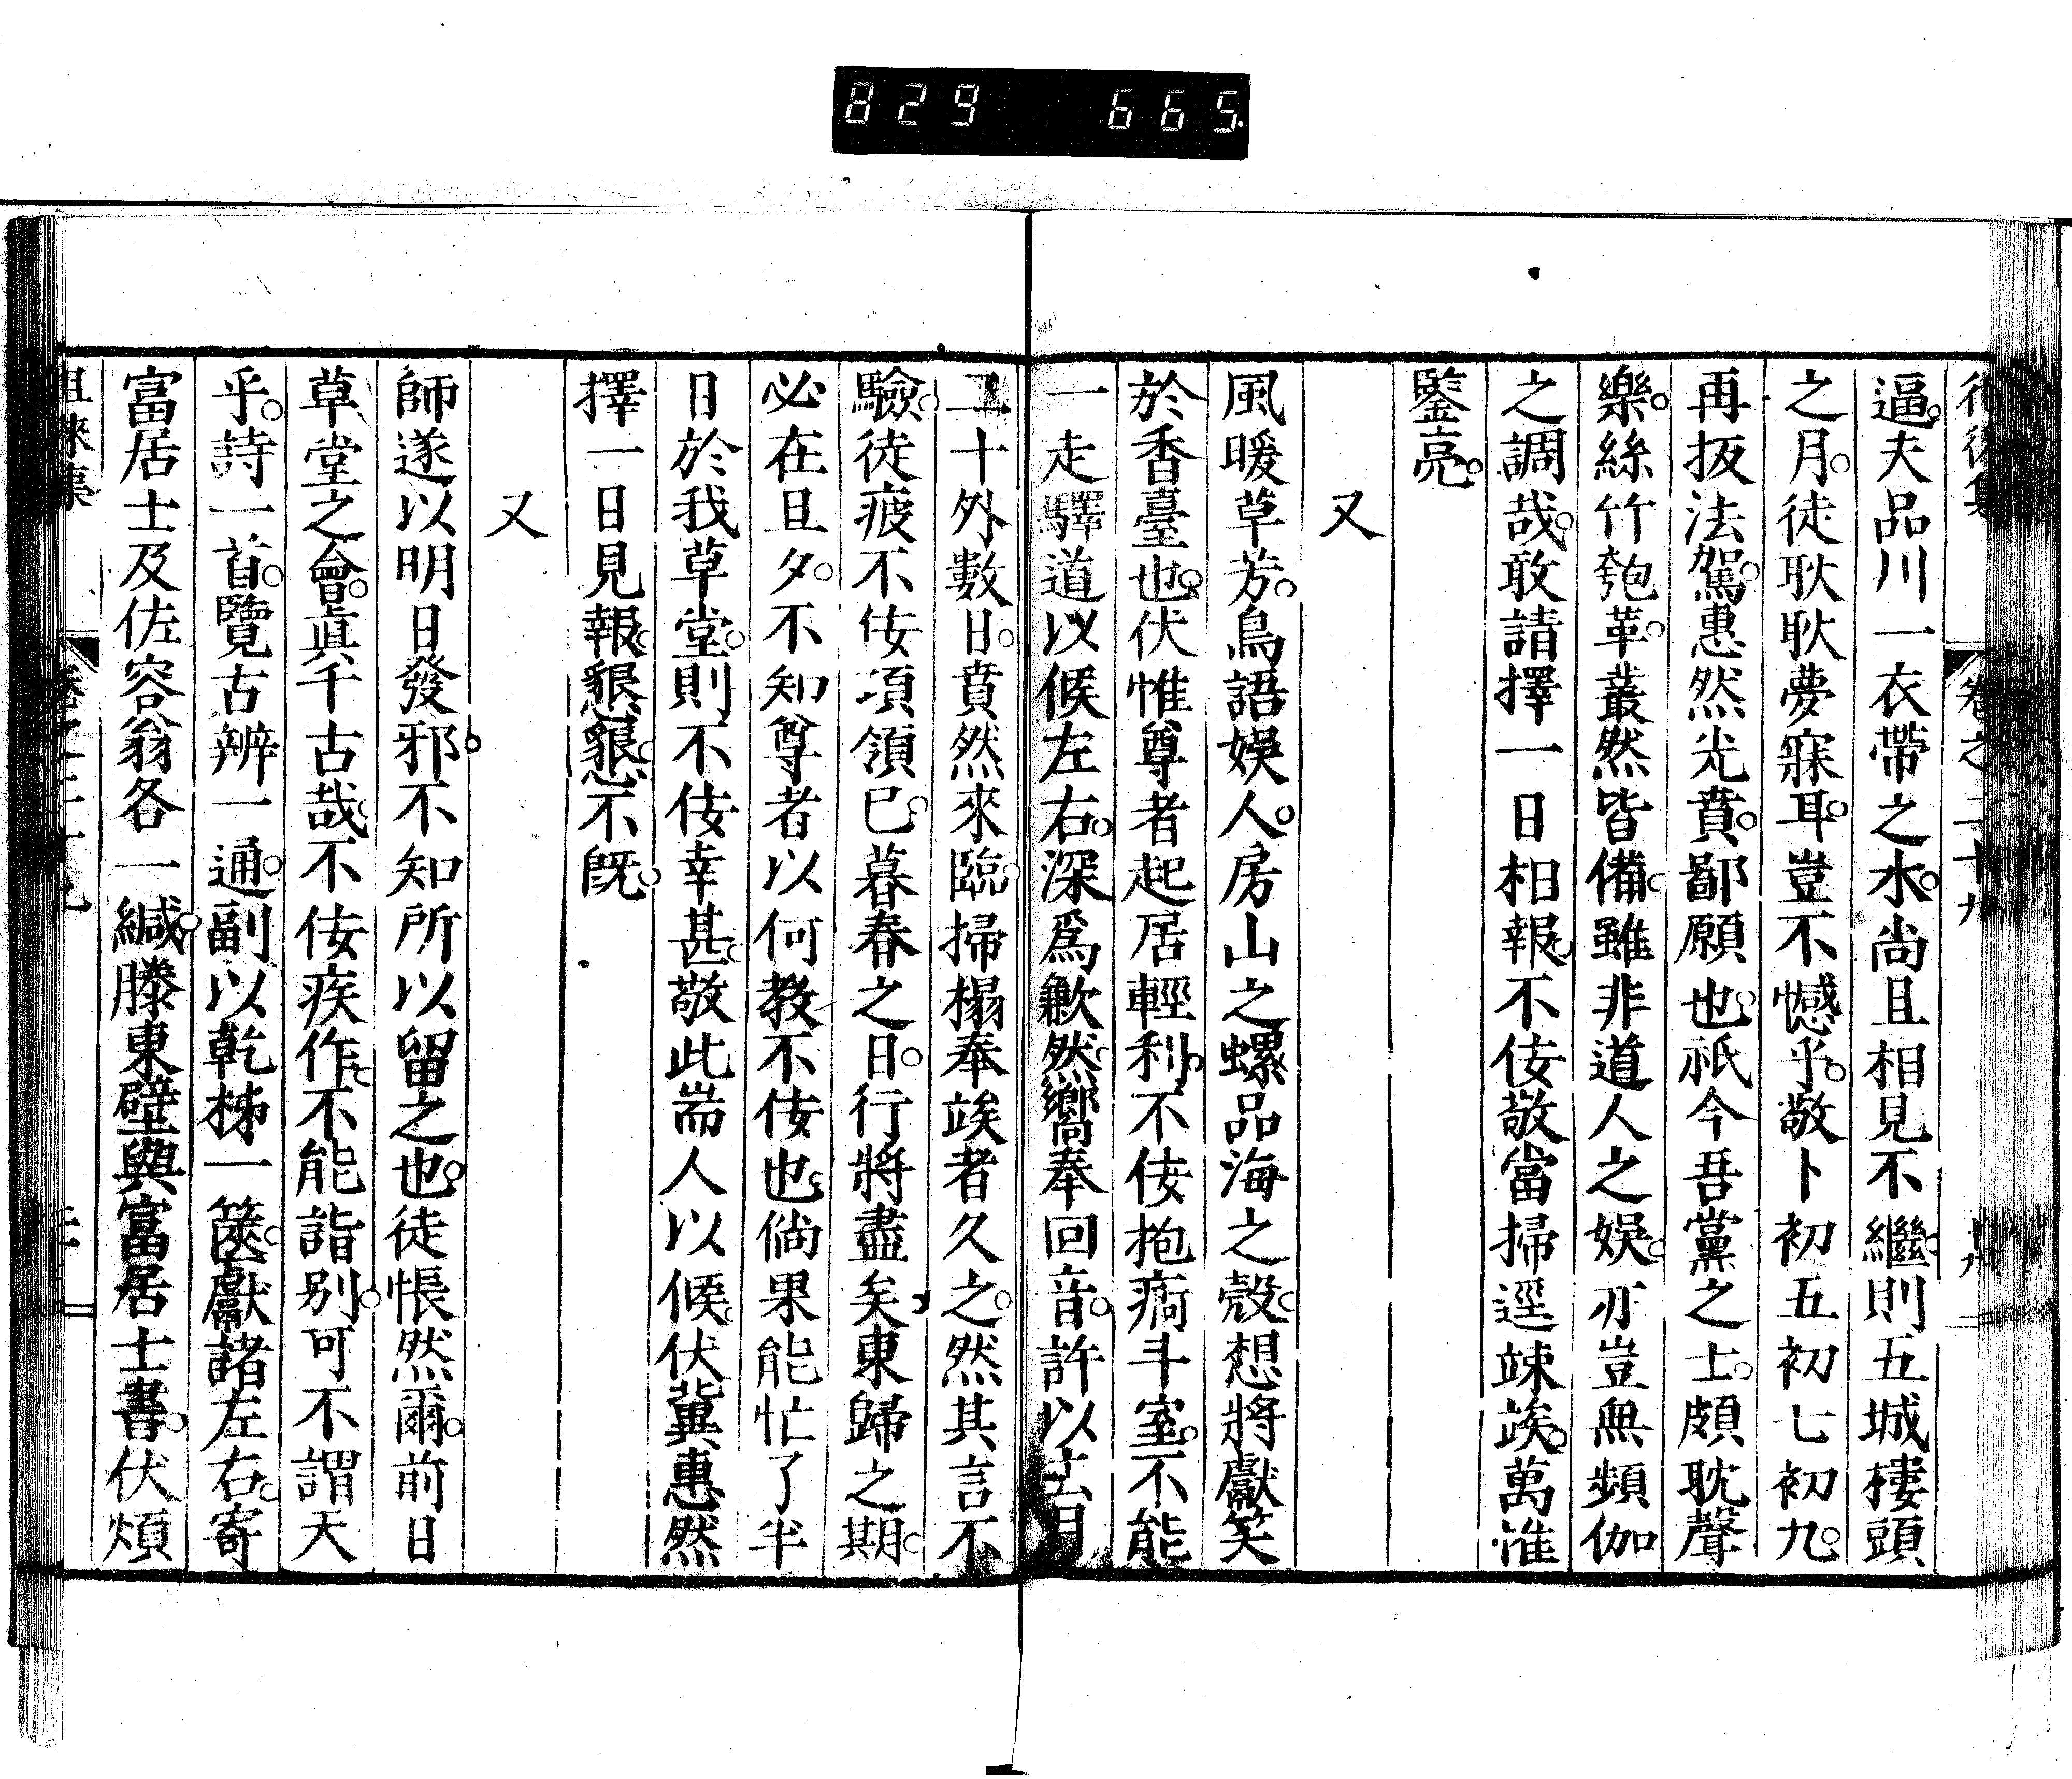 829 665
逼。夫品川一衣帶之水。尚且相見不繼。則五城樓頭
之月。徒耿耿夢寐耳。豈不憾乎。敬卜初五初七初九。
再扳法駕。惠然光賁。鄙願也。祇今吾黨之士。頗耽聲
樂。絲竹匏革。叢然皆備。雖非道人之娯。亦豈無頻伽
之調哉。敢請擇一日相報。不佞敬當掃逕竦竢。萬惟
鑒亮。
又
風暖草芳。鳥語娯人。房山之螺。品海之殼。想將獻笑
於香臺也。伏惟尊者起居輕利。不佞抱痾斗室。不能
一走驛道以候左右。深爲歉然。嚮奉回音。許以去月
二十外數日。賁然來臨。掃榻奉竢者久之。然其言不
驗。徒疲不佞項領已。暮春之日。行將盡矣。東歸之期。
必在旦夕。不知尊者以何教不佞也。倘果能忙了半
日於我草堂。則不佞幸甚。敬此耑人以候。伏冀惠然
擇一日見報。懇懇。不既。
又
師遂以明日發邪。不知所以留之也。徒悵然爾。前日
草堂之會。眞千古哉。不佞疾作。不能詣別。可不謂天
乎。詩一首。覽古辨一通。副以乾柹一篋。獻諸左右。寄
富居士及佐容翁各一緘。滕東壁與富居士書。伏煩
徂徠集 卷之二十九